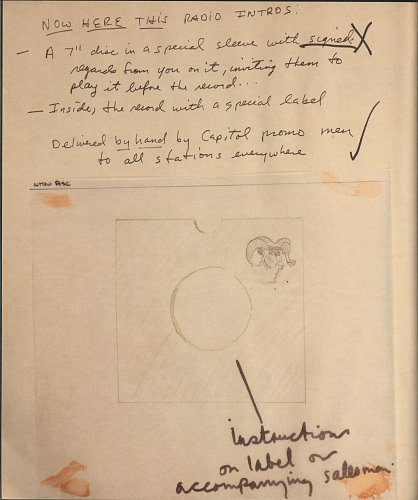 NOW HERE THIS RADIO INTROS:
— A 7" disc in a special sleeve with signed
regards from you on it, inviting them to
play it before the record...
— Inside, the record with a special label
Delivered by hand by Capitol promo men
to all stations everywhere
INTRO DISC
instructions
on label or
accompanying salesman